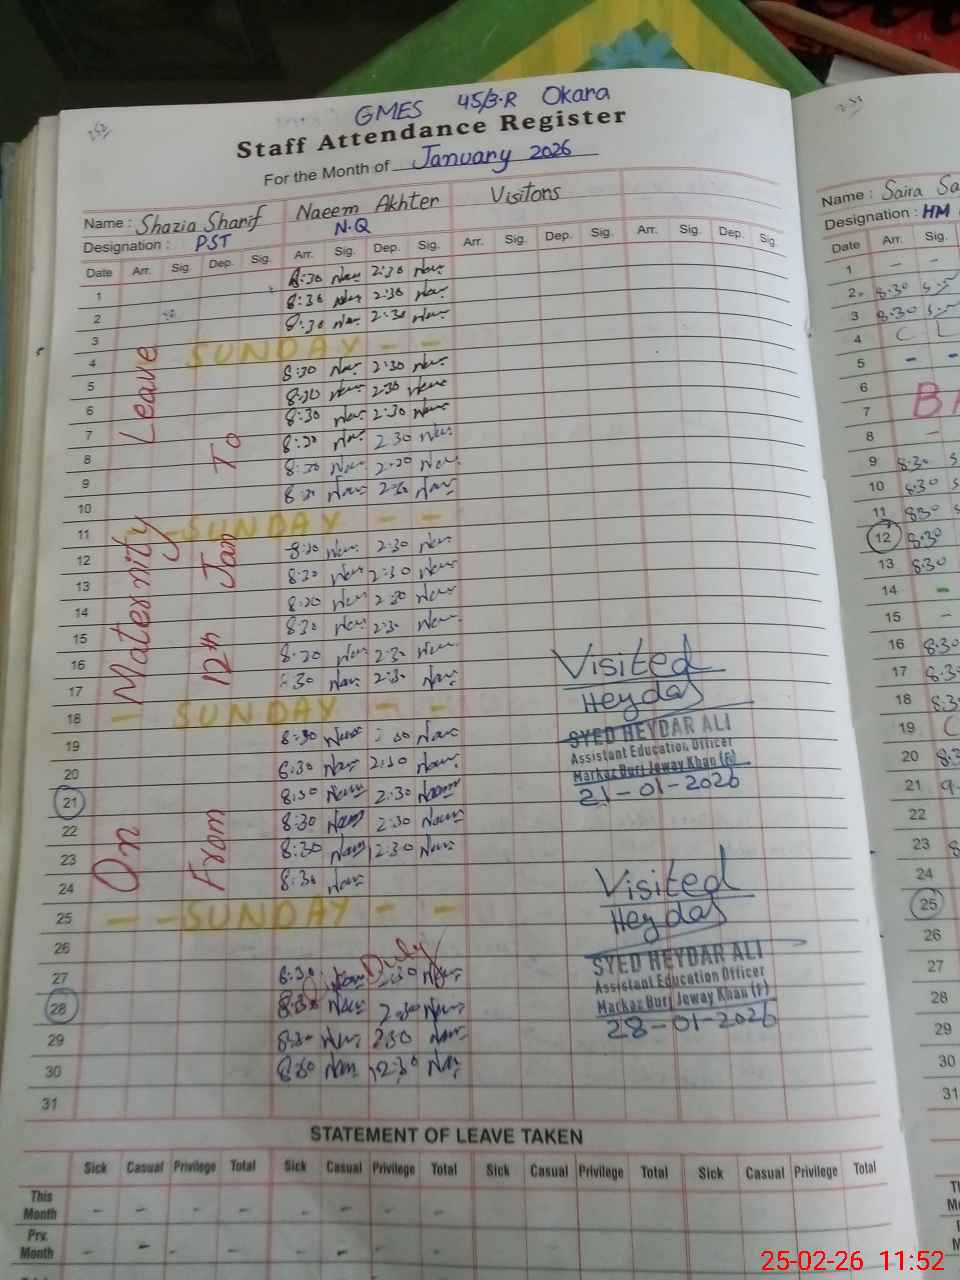 GMES 45/3-R Okara
Staff Attendance Register
For the Month of January 2026
Name : Shazia Sharif Naeem Akhter Visitors
Designation : PST N.Q
Date Arr. Sig. Dep. Sig. Arr. Sig. Dep. Sig. Arr. Sig. Dep. Sig. Arr. Sig. Dep. Sig.
1 8:30 2:30
2 8:30 2:30
3 8:30 2:30
4 SUNDAY - -
5 8:30 2:30
6 8:30 2:30
7 8:30 2:30
8 8:30 2:30
9 8:30 2:30
10 8:30 2:30
11 - SUNDAY - -
12 8:30 2:30
13 8:30 2:30
14 8:30 2:30
15 8:30 2:30
16 8:30 2:30
17 8:30 2:30
18 - SUNDAY - -
19 8:30
20 8:30 2:30
21 8:30 2:30
22 8:30 2:30
23 8:30 2:30
24 8:30
25 - - SUNDAY - -
26 Duty
27 8:30 2:30
28 8:30 2:30
29 8:30 2:30
30 8:30 2:30
31
On Maternity Leave
From 12th Jan To
Visited
Heydar
SYED HEYDAR ALI
Assistant Education Officer
Markaz Burj Jeway Khan
21-01-2026
Visited
Heydar
SYED HEYDAR ALI
Assistant Education Officer
Markaz Burj Jeway Khan (F)
28-01-2026
STATEMENT OF LEAVE TAKEN
Sick Casual Privilege Total Sick Casual Privilege Total Sick Casual Privilege Total Sick Casual Privilege Total
This Month - - - - - - - -
Prv. Month - - - - - - - -
253
Name : Saira
Designation : HM
Date Arr. Sig.
1 - -
2 8:30
3 8:30
4 C L
5 - -
6
7
8 -
9 8:30
10 8:30
11 8:30
12 8:30
13 8:30
14 -
15 -
16 8:30
17 8:30
18 8:30
19 C
20 8:30
21
22
23
24
25
26
27
28
29
30
31
25-02-26 11:52